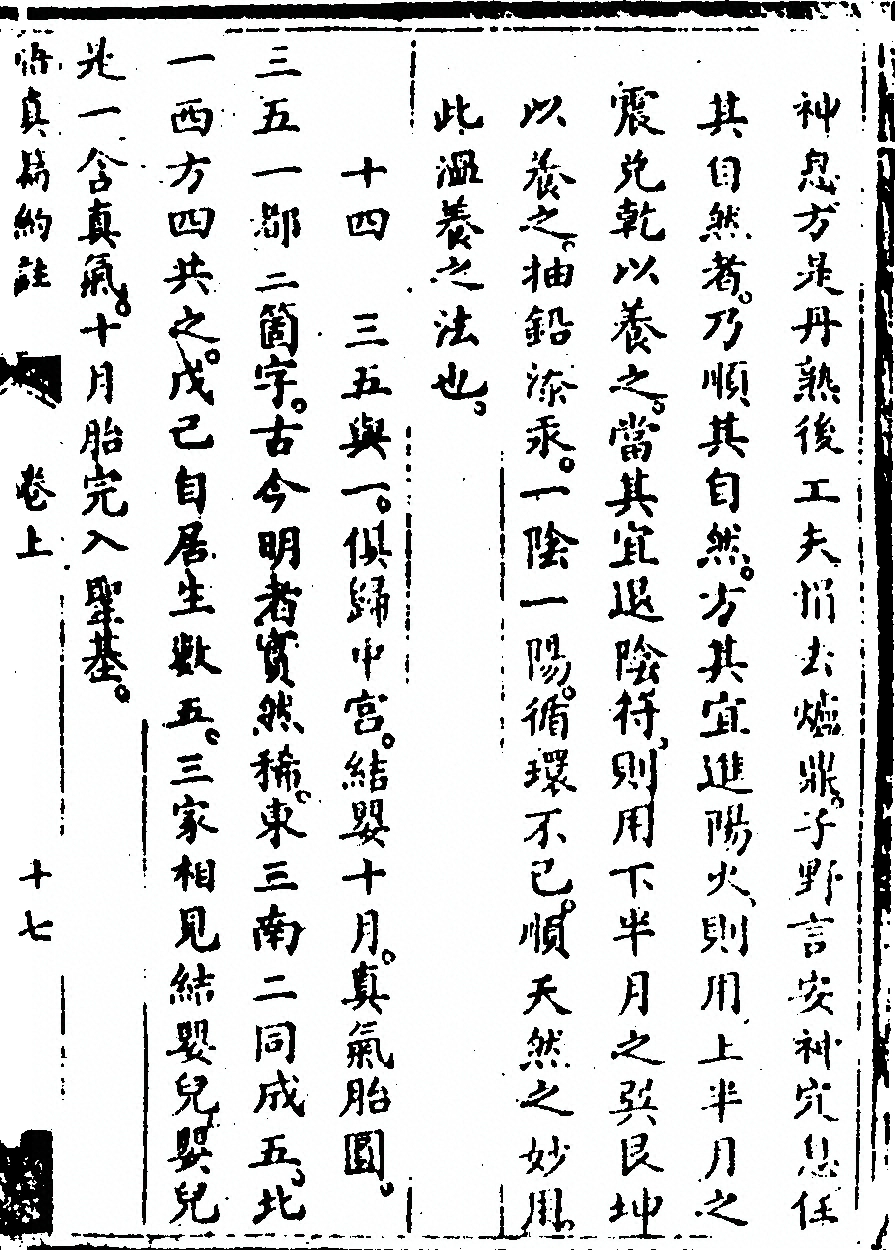 神息方是丹熟後工夫悁去爐鼎。子野言安神定息任
其自然者。乃順其自然。方其宜進陽火、則用上半月之
震兑乾以養之。當其宜退陰符、則用下半月之巽艮坤
以養之。抽鉛添汞。一陰一陽。循環不已。順天然之妙用。
此溫養之法也。
十四 三五與一。俱歸中宮。結嬰十月。真氣胎圓。
三五一都二箇字。古今明者實然稀。東三南二同成五、北
一西方四共之。戊己自居生數五。三家相見結嬰兒嬰兒
是一含真氣。十月胎完入聖基。
悟真篇約註 卷上 十七